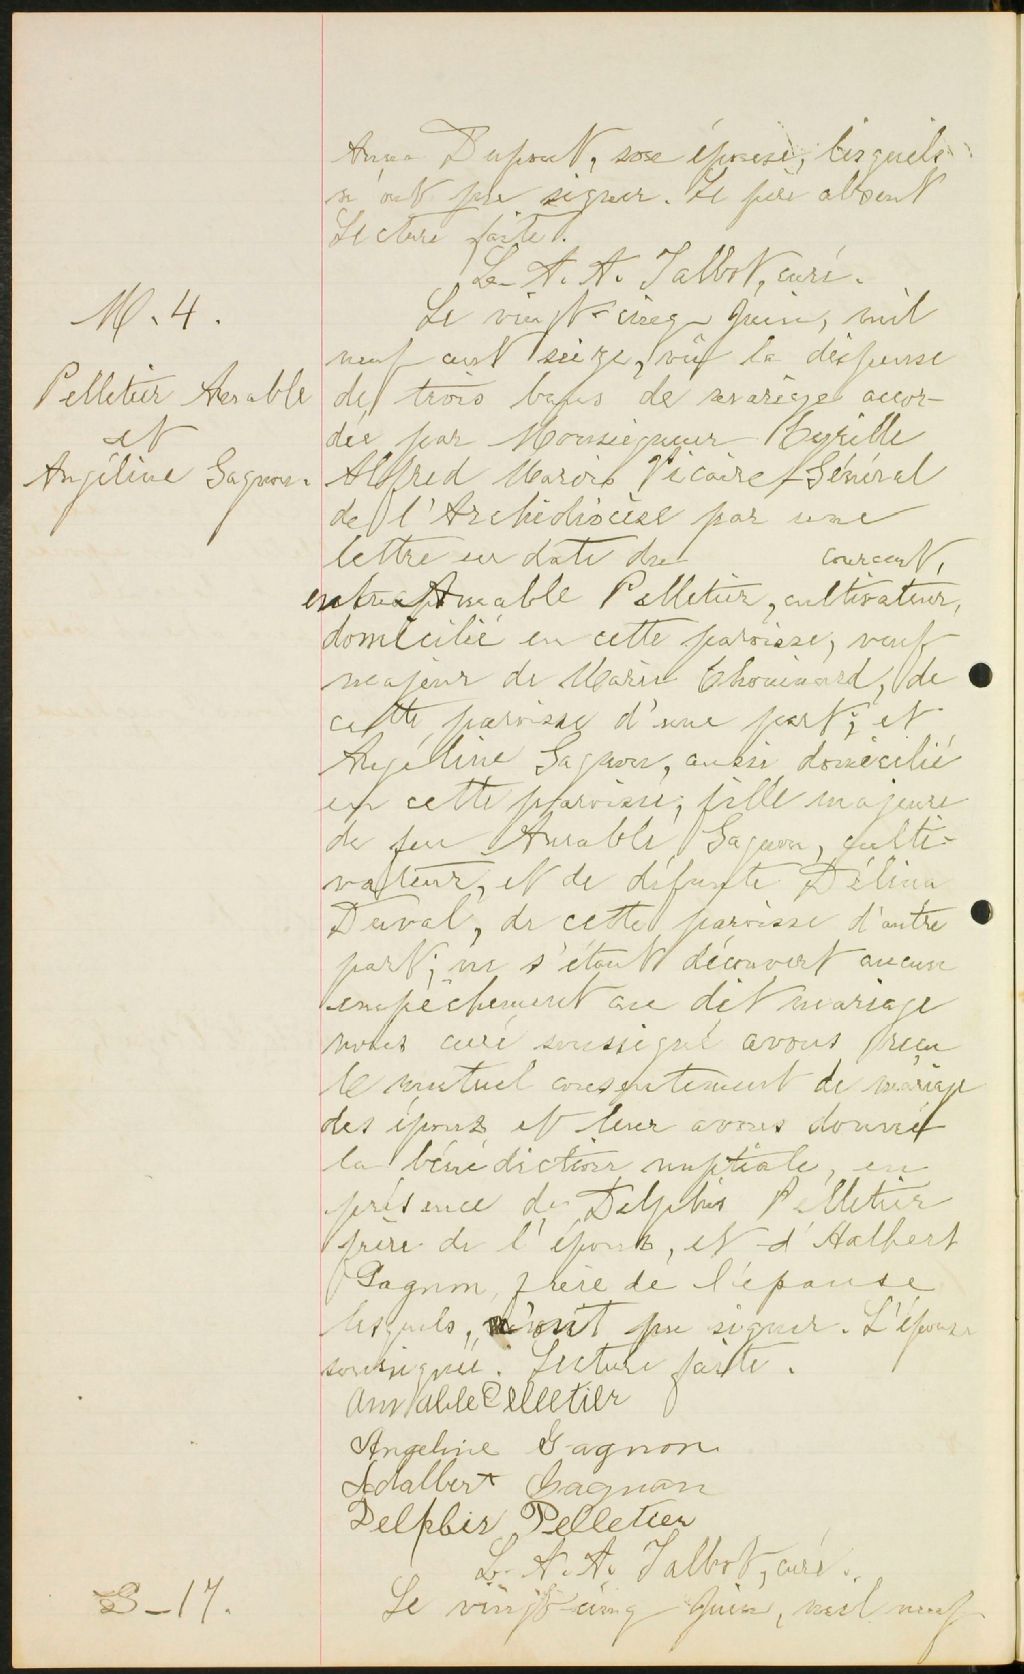 Anna Dupont, son épouse, lesquels
n'ont pu signer. Le père absent
Lecture faite.
L. A. A. Talbot, curé.
M. 4.
Pelletier Amable
et
Angéline Gagnon.
Le vingt-cinq Juin, mil
neuf cent seize, vu la dispense
de trois bans de mariage accor-
dée par Monseigneur Cyrille
Alfred Marois Vicaire-Général
de l'Archidiocèse par une
lettre en date du courant,
entre Amable Pelletier, cultivateur,
domicilié en cette paroisse, veuf
majeur de Marie Chouinard, de
cette paroisse d'une part; et
Angéline Gagnon, aussi domicilié
en cette paroisse, fille majeure
de feu Amable Gagnon, culti-
vateur, et de défunte Délina
Duval, de cette paroisse d'autre
part; ne s'étant découvert aucun
empêchement au dit mariage
nous curé soussigné avons reçu
le mutuel consentement de mariage
des époux et leur avons donné
la bénédiction nuptiale, en
présence de Delphis Pelletier
frère de l'époux, et d'Halbert
Gagnon, frère de l'épouse
lesquels, n'ont pu signer. L'épouse
soussignée. Lecture faite.
Amable Pelletier
Angeline Gagnon
Adalbert Gagnon
Delphis Pelletier
L. A. A. Talbot, curé.
S-17.
Le vingt-cinq Juin, mil neuf